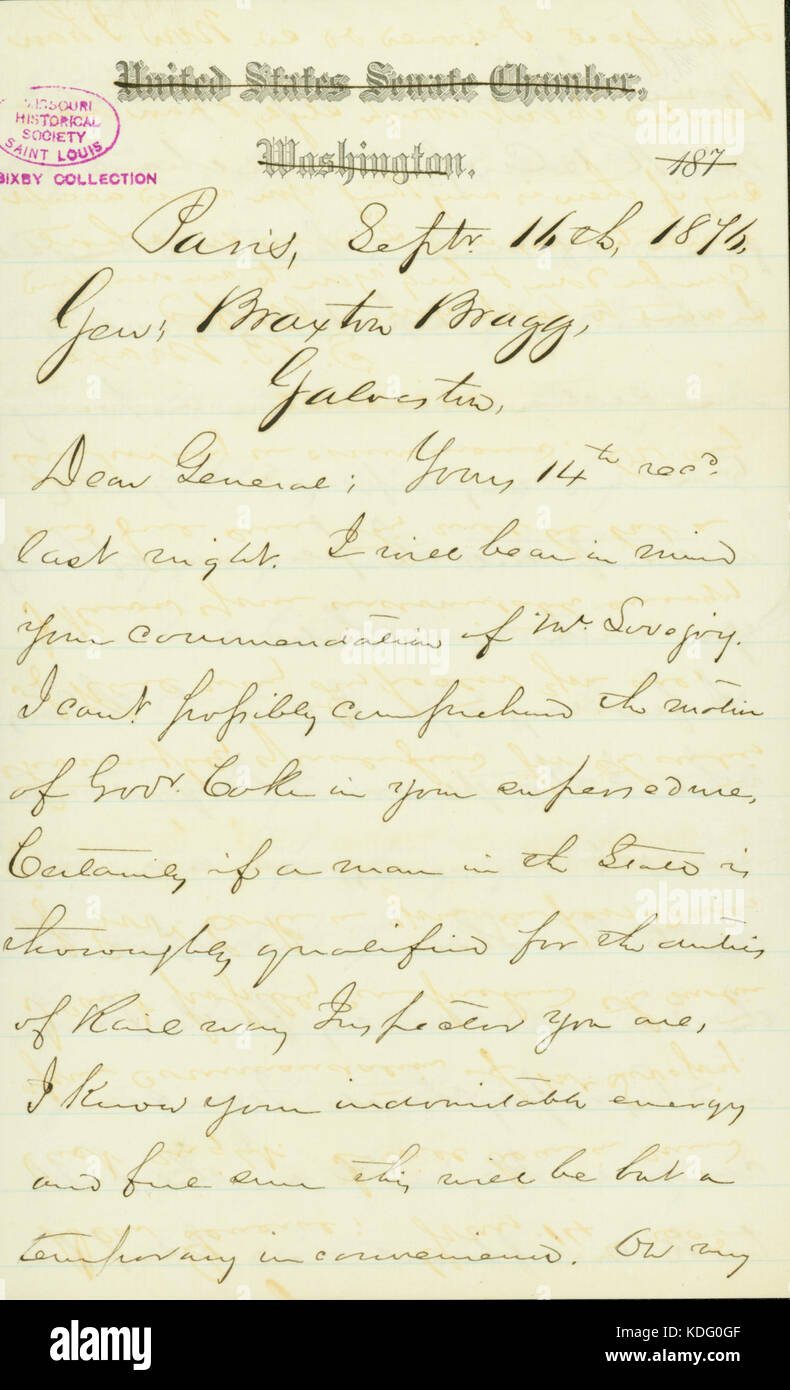 United States Senate Chamber,
MISSOURI
HISTORICAL
SOCIETY
SAINT LOUIS
BIXBY COLLECTION
Washington.
187
Paris, Septr. 16th, 1876,
Genl; Braxton Bragg,
Galveston,
Dear General; Yours 14th recd.
last night. I will bear in mind
your commendation of Mr. Lovejoy.
I can't possibly comprehend the motive
of Govr. Coke in your supersedure,
Certainly if a man in the State is
thoroughly qualified for the duties
of Railway Inspector you are,
I know your indomitable energy
and feel sure this will be but a
temporary inconvenience. On my
alamy
Image ID: KD0G0F
www.alamy.com